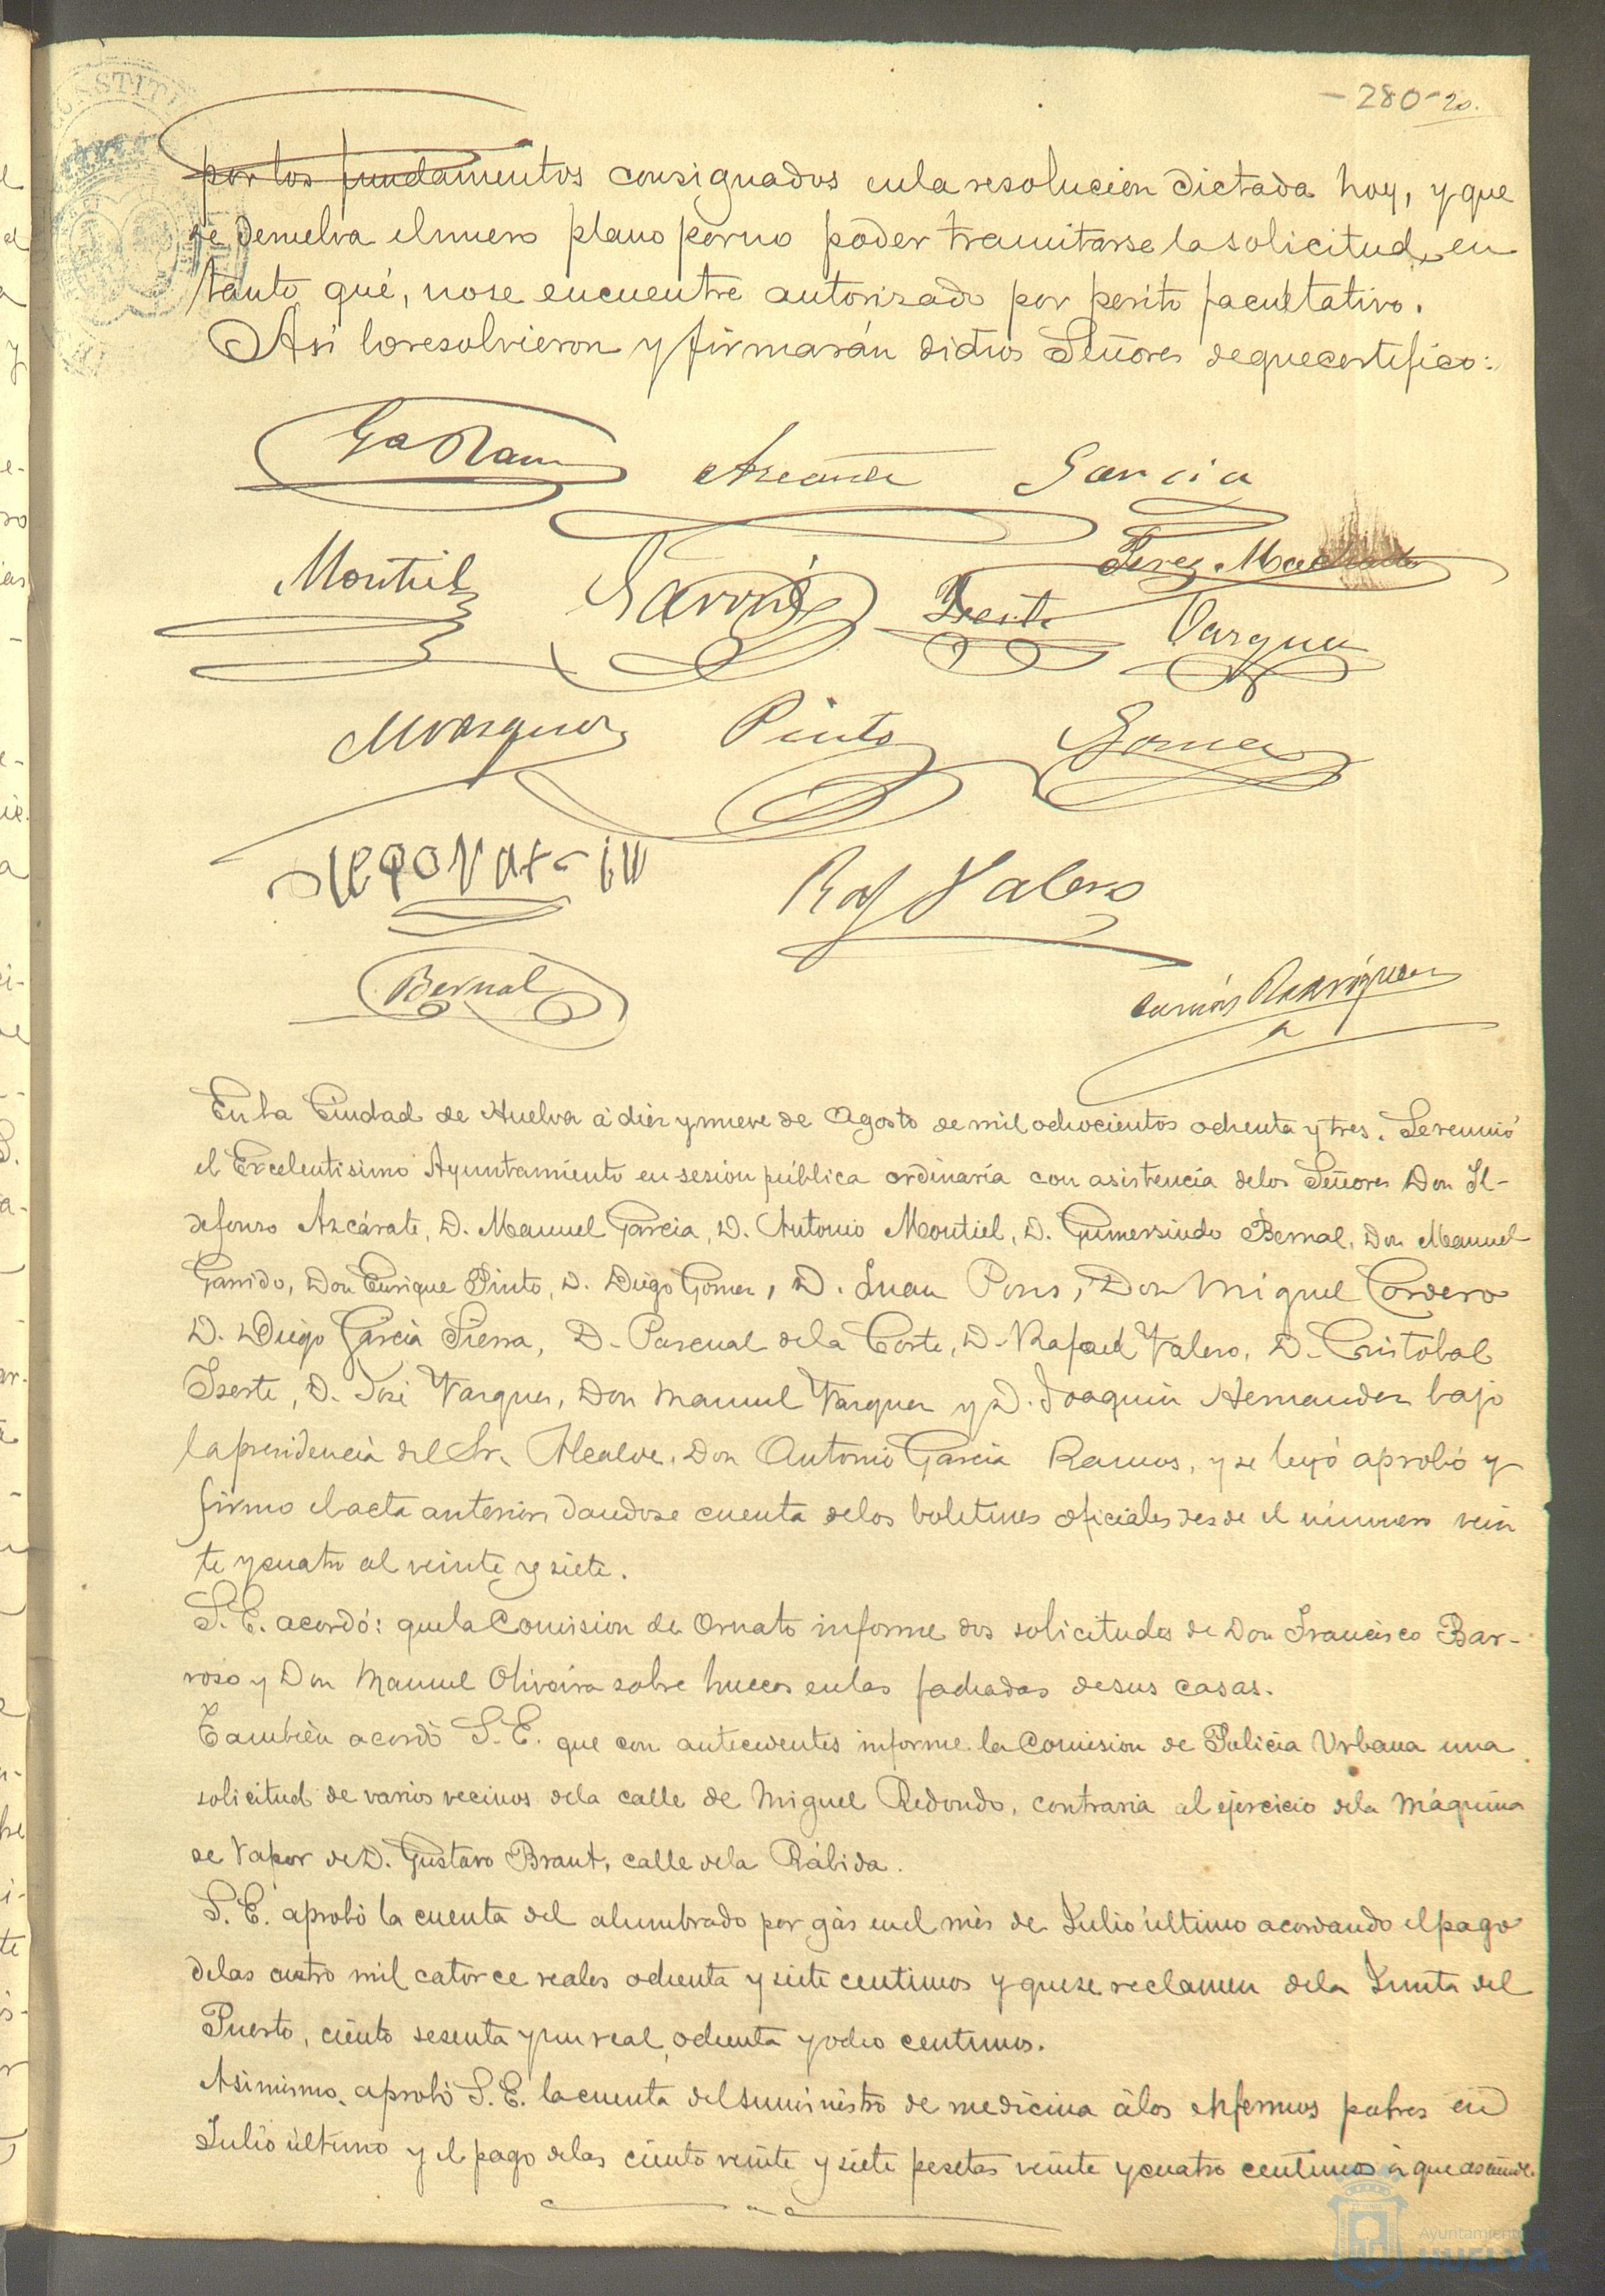 -280- 20.
CONSTITU
por los fundamentos consignados en la resolucion dictada hoy, y que
se devuelva el nuevo plano por no poder tramitarse la solicitud, en
tanto qué, no se encuentre autorizado por perito facultativo.
Así lo resolvieron y firmarán dichos Señores de que certifico:
Ga Ramos
Azcárate Garcia
Montiel Garrido Iserte Perez Machado
Vazquez
M Vazquez Pinto Gomez
Raf Valero
Bernal
Rodriguez
En la Ciudad de Huelva á diez y nueve de Agosto de mil ochocientos ochenta y tres. Se reunió
el Excelentisimo Ayuntamiento en sesion pública ordinaria con asistencia de los Señores Don Il-
defonso Azcárate, D. Manuel Garcia, D. Antonio Montiel, D. Gumersindo Bernal, Don Manuel
Garrido, Don Enrique Pinto, D. Diego Gomez, D. Juan Pons, Don Miguel Cordero
D. Diego Garcia Sierra, D. Pascual de la Corte, D. Rafael Valero, D. Cristobal
Iserte, D. José Vazquez, Don Manuel Vazquez y D. Joaquin Hernandez bajo
la presidencia del Sr. Alcalde, Don Antonio Garcia Ramos, y se leyó aprobó y
firmo el acta anterior dandose cuenta de los boletines oficiales desde el número vein
te y cuatro al veinte y siete.
S. E. acordó: que la Comision de Ornato informe dos solicitudes de Don Francisco Bar-
roso y Don Manuel Oliveira sobre huecos en las fachadas de sus casas.
También acordó S. E. que con antecedentes informe la Comision de Policia Urbana una
solicitud de varios vecinos de la calle de Miguel Redondo, contraria al ejercicio de la Máquina
de Vapor de D. Gustavo Braut, calle de la Rábida.
S. E. aprobó la cuenta del alumbrado por gás en el més de Julio último acordando el pago
de las cuatro mil catorce reales ochenta y siete centimos y que se reclamen de la Junta del
Puerto, ciento sesenta y un real, ochenta y ocho centimos.
Asimismo, aprobó S. E. la cuenta del suministro de medicina á los enfermos pobres en
Julio último y el pago de las ciento veinte y siete pesetas veinte y cuatro centimos á que asciende.
Ayuntamiento
HUELVA